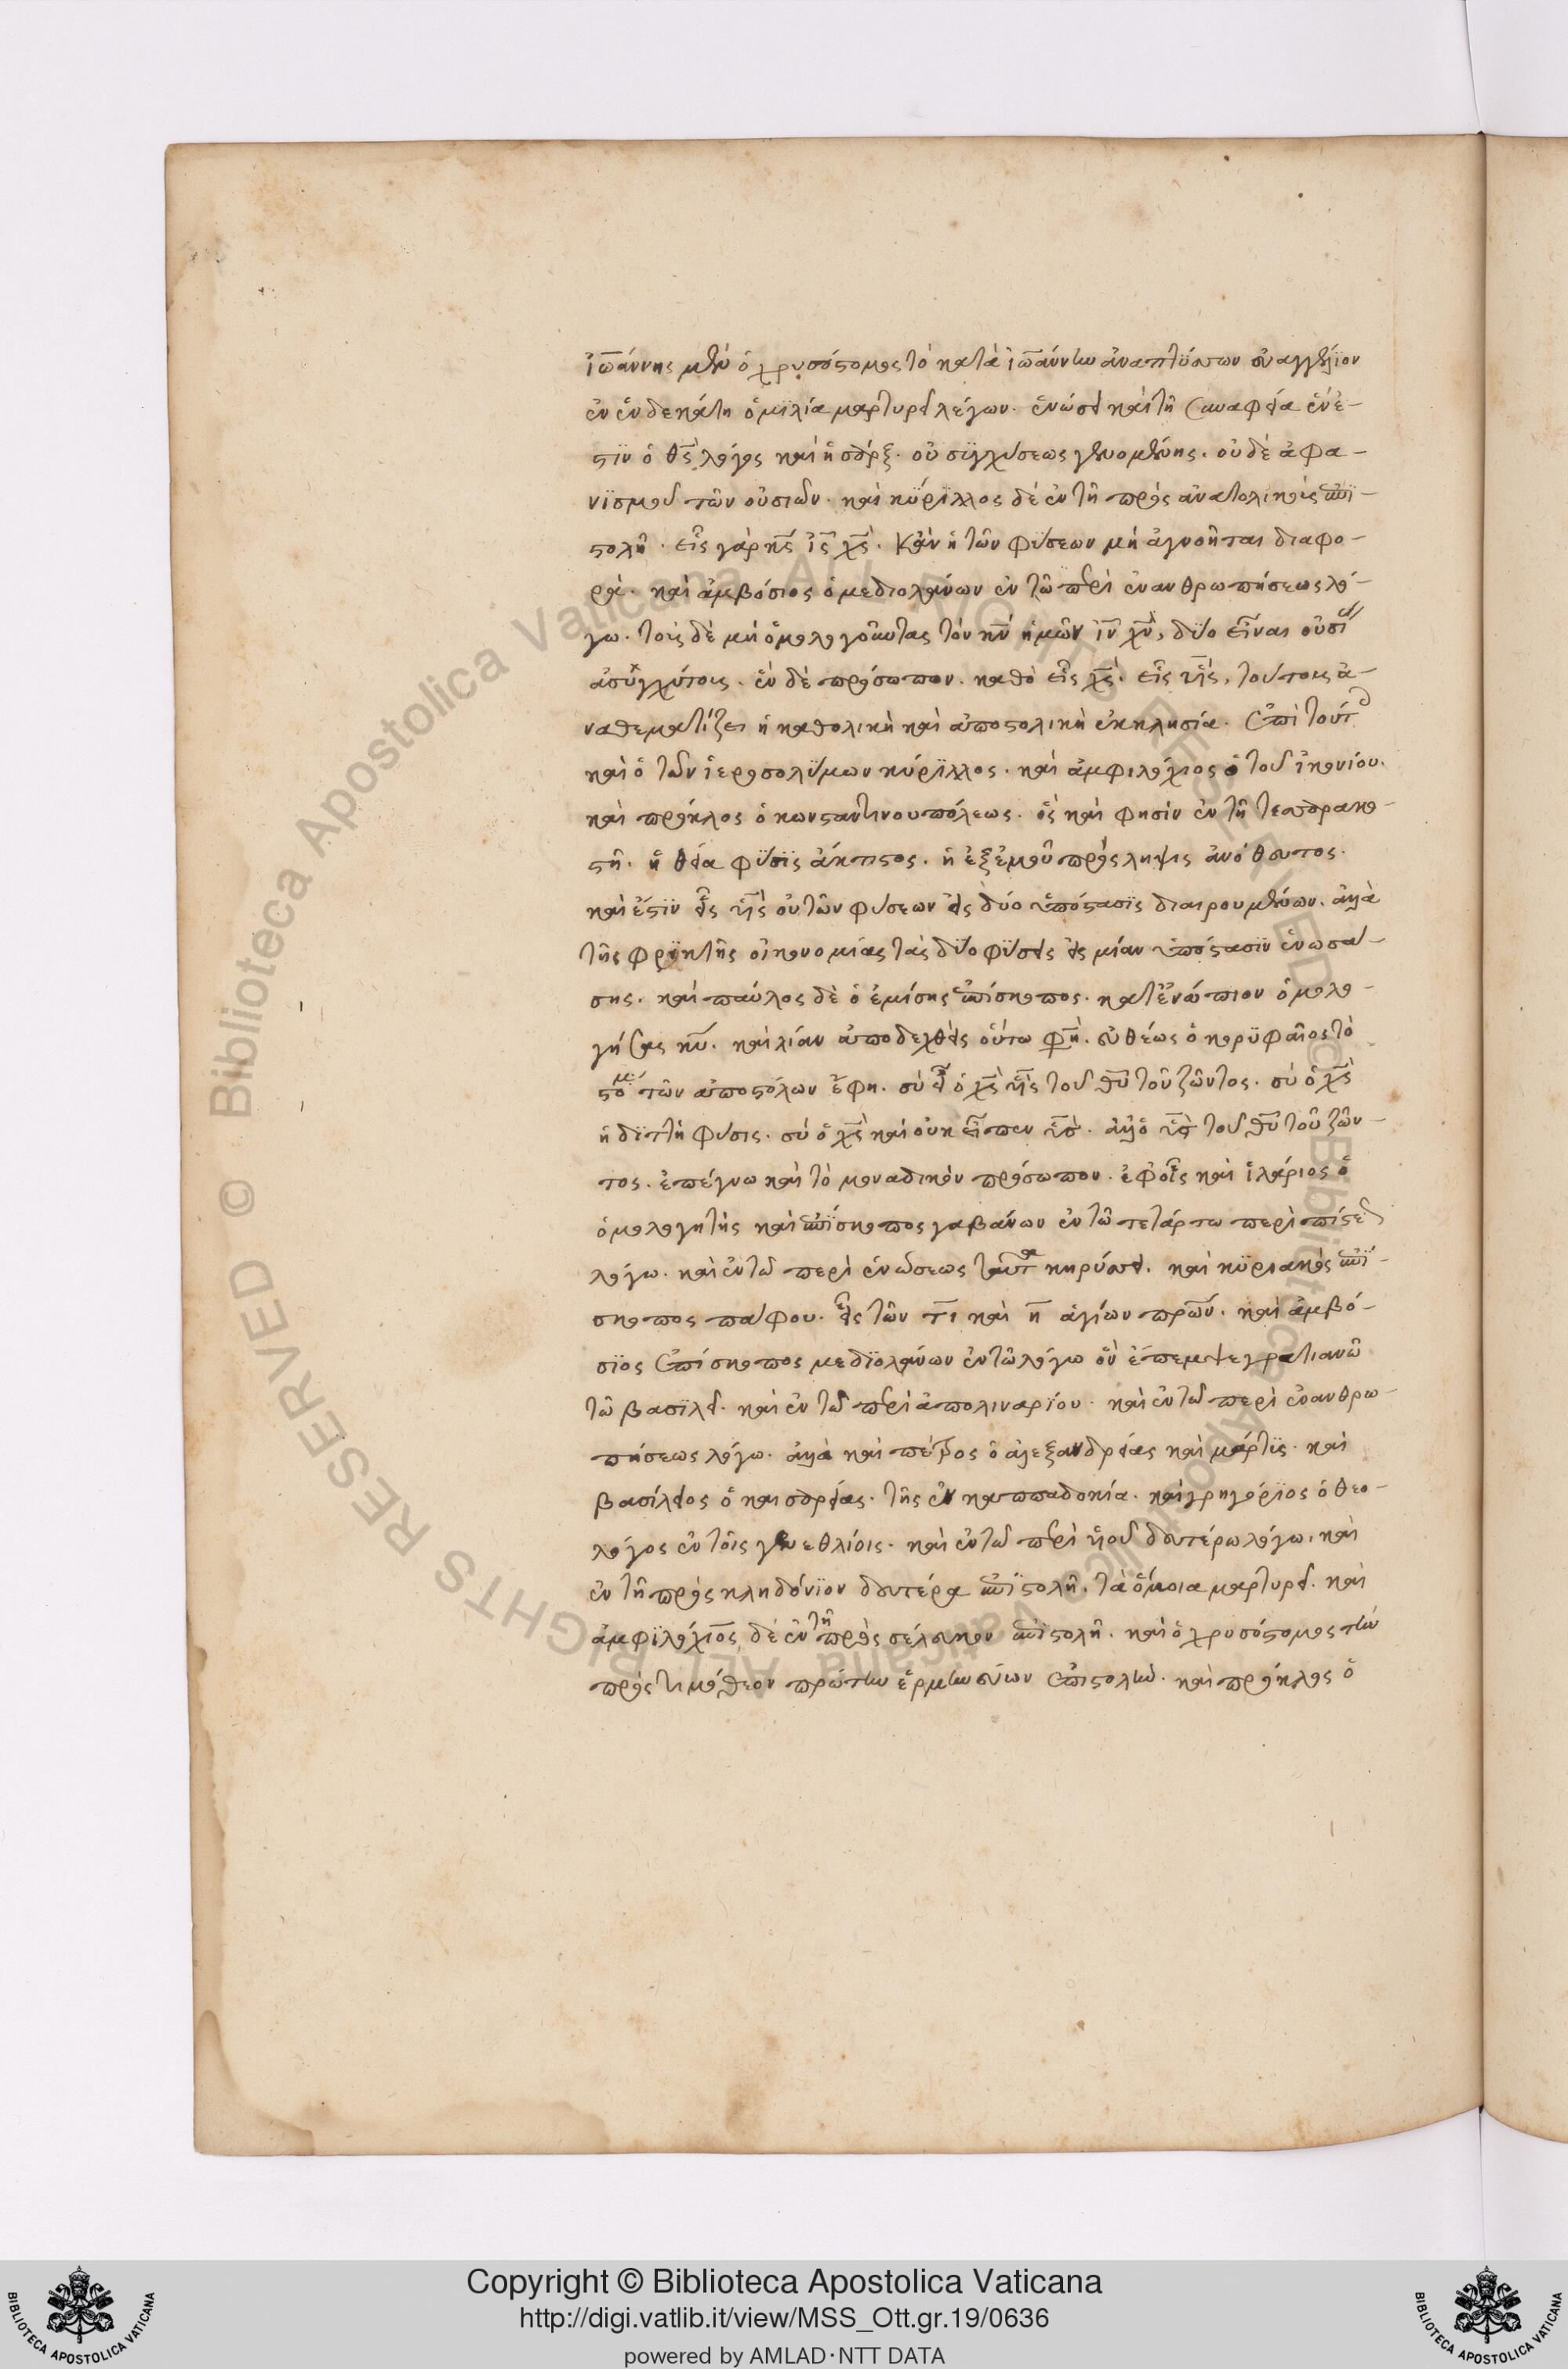 ἰω̅άννης μὲν ὁ χρυσόστομος τὸ κατὰ ἰω̅άννην ἀναπτύσσων εὐαγγέλϊον
ἐν ἑνδεκάτη ὁμϊλία μαρτυρεῖ λέγων· ἑνώσει καὶ τῆ συναφεία ἕν ἐ-
στϊν ὁ θς̅ λόγος καὶ ἡ σάρξ· οὐ σϊγχύσεως γενομένης· οὐδὲ ἀφα-
νϊσμοῦ τῶν οὐσιῶν· καὶ κύρϊλλος δὲ ἐν τῆ πρὸς ἀνατολικοὶς ἐπϊ-
στολῆ· εἷς γὰρ κς̅ ις̅ χς̅· κἂν ἡ τῶν φύσεων μὴ ἀγνοῆται διαφο-
ρά· καὶ ἀμβόσιος ὁ μεδιολάνων ἐν τῶ περὶ ἐνανθρωπήσεως λό-
γω· τοὶς δὲ μὴ ὁμολογοῦντας τὸν κν̅ ἡμῶν ιν̅ χν̅, δύο εἶναι οὐσί
ἀσϋγχύτοις· ἓν δὲ πρόσωπον· καθὸ εἷς χς̅· εἷς υἱς̅, τούτοις ἀ-
ναθεματίζει ἡ καθολικὴ καὶ ἀποστολικὴ ἐκκλησία· ἐπὶ τούτ
καὶ ὁ τῶν ἱεροσολύμων κύρϊλλος· καὶ ἀμφιλόχιος ὁ τοῦ ἰκονίου·
καὶ πρόκλος ὁ κωνσταντινουπόλεως· ὃς καὶ φησὶν ἐν τῆ τεσσρακο-
στῆ· ἡ θεία φύσϊς ἄκτιστος· ἡ ἐξ ἐμοῦ πρόςληψις ἀνόθευτος·
καὶ ἔστϊν εἷς υἱς̅ οὐ τῶν φύσεων εἰς δύο ὑπόστασϊς διαιρουμένων· ἀλλὰ
τῆς φρϊκτῆς οἰκονομίας τὰς δύο φύσεις εἰς μίαν ὑπόστασϊν ἑνωσά-
σης· καὶ παύλος δὲ ὁ ἐμίσης ἐπίσκοπος· κατενώπιον ὁμολο-
γήσας κυ̅· καὶ λίαν ἀποδεχθεὶς οὕτω φη̅· εὐθέως ὁ κορϋφαῖος τὸ
στομ τῶν ἀποστόλων ἔφη· σὺ εἶ ὁ χς̅ υἱς̅ τοῦ θυ̅ τοῦ ζῶντος· σὺ ὁ χς̅
ἡ δϊπλὴ φύσις· σὺ ὁ χς̅ καὶ οὐκ εἶπεν υἱς̅· ἀλλ' ὁ υἱς̅ τοῦ θυ̅ τοῦ ζῶν-
τος· ἐπέγνω καὶ τὸ μοναδικὸν πρόσωπον· ἐφ' οἷς καὶ ἱλάριος ὁ
ὁμολογητὴς καὶ ἐπΐσκοπος γαβάνων ἐν τῶ τετάρτω περὶ πίστε
λόγω· καὶ ἐν τῶ περὶ ἑνώσεως ταῦτα κηρύσσει· καὶ κϋριακὸς ἐπΐ-
σκοπος πάφου· εἷς τῶν τ̅ι καὶ η̅ ἁγίων πρω̅ν· καὶ ἀμβό-
σϊος ἐπίσκοπος μεδϊολάνων ἐν τῶ λόγω οὗ ἔπεμψε γρατιανῶ
τῶ βασϊλεῖ· καὶ ἐν τῶ περὶ ἀπολιναρΐου· καὶ ἐν τῶ περὶ ἐνανθρω-
πήσεως λόγω· ἀλλὰ καὶ πέτρος ὁ ἀλεξανδρείας καὶ μάρτϊς· καὶ
βασίλειος ὁ καισαρείας· τῆς ἐν καππαδοκία· καὶ γρηγόρϊος ὁ θεο-
λόγος ἐν τοῖς γενεθλίοις· καὶ ἐν τῶ περὶ υἱοῦ δευτέρω λόγω· καὶ
ἐν τῆ πρὸς κληδόνϊον δευτέρα ἐπϊστολῆ· τὰ ὅμοια μαρτυρεῖ· καὶ
ἀμφϊλόχιος δὲ ἐν τῆ πρὸς σέλευκον ἐπϊστολῆ· καὶ ὁ χρυσόστομος τὴν
πρὸς τιμόθεον πρώτην ἑρμηνεύων ἐπιστολὴν· καὶ πρόκλος ὁ
© Biblioteca Apostolica Vaticana ALL RIGHTS RESERVED © Biblioteca Apostolica Vaticana ALL RIGHTS RESERVED
Copyright © Biblioteca Apostolica Vaticana
http://digi.vatlib.it/view/MSS_Ott.gr.19/0636
powered by AMLAD·NTT DATA
BIBLIOTECA APOSTOLICA VATICANA
BIBLIOTECA APOSTOLICA VATICANA